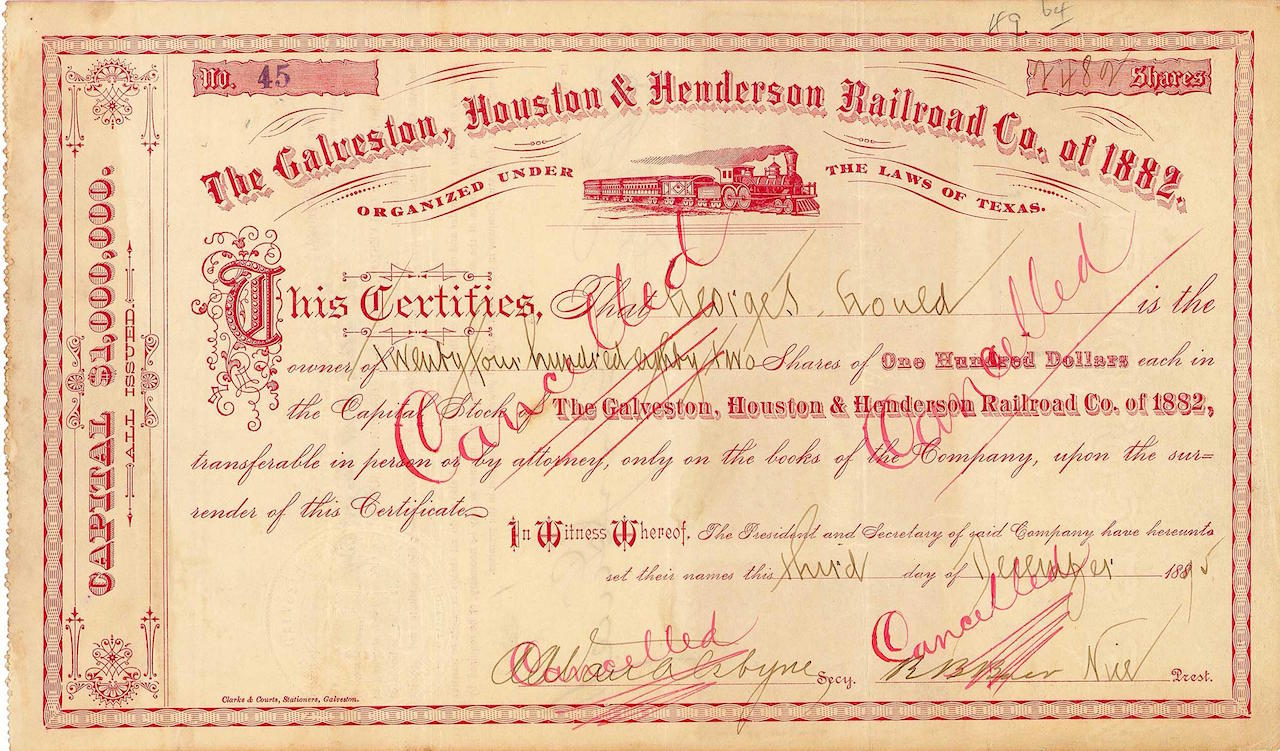 49 64
No. 45
2482 Shares
The Galveston, Houston & Henderson Railroad Co. of 1882.
ORGANIZED UNDER THE LAWS OF TEXAS.
CAPITAL $1,000,000.
ALL ISSUED.
This Certifies, That George J. Gould is the
owner of Twenty four hundred eighty two Shares of One Hundred Dollars each in
the Capital Stock of The Galveston, Houston & Henderson Railroad Co. of 1882,
transferable in person or by attorney, only on the books of the Company, upon the sur=
render of this Certificate
Cancelled
Cancelled
In Witness Whereof, The President and Secretary of said Company have hereunto
set their names this third day of December 1895
Cancelled
Cancelled
Secy.
Prest.
Clarke & Courts, Stationers, Galveston.